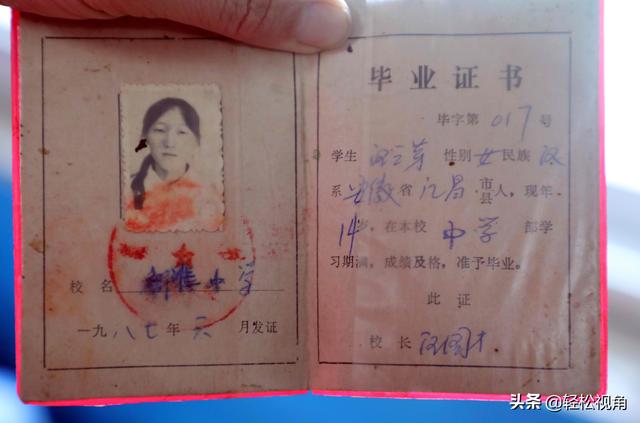 校名 中学
一九八七年六月发证
毕业证书
毕字第017号
学生 性别女民族汉
系安徽省 市县人，现年
14岁，在本校中学部学
习期满，成绩及格，准予毕业。
此证
校长
头条 @轻松视角